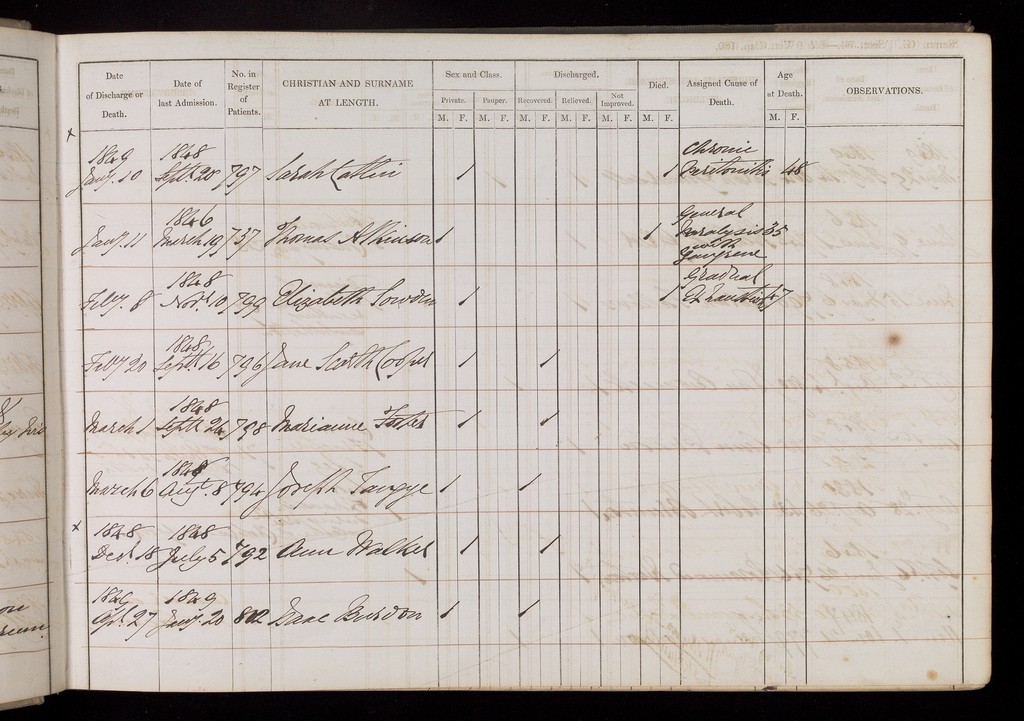 Date of Discharge or Death.
Date of last Admission.
No. in Register of Patients.
CHRISTIAN AND SURNAME AT LENGTH.
Sex and Class.
Private. Pauper.
M. F. M. F.
Discharged.
Recovered. Relieved. Not Improved.
M. F. M. F. M. F.
Died.
M. F.
Assigned Cause of Death.
Age at Death.
M. F.
OBSERVATIONS.
x
1849 1848 Chronic
Jany. 10 Septr. 20 797 Sarah Catlin 1 1 Peritonitis 48
1846 General
Jany. 11 March 19 737 Thomas Atkinson 1 1 Paralysis 35
with
Gangrene
1848 Gradual
Feby. 8 Novr. 10 799 Elizabeth Sowden 1 1 Exhaustion 47
1848
Feby 20 Septr. 16 796 Jane Scarth Cooper 1 1
1848
March 1 Septr. 24 798 Marianne Foster 1 1
1848
March 6 Augt. 8 794 Joseph 1 1
x
1848 1848
Decr. 18 July 5 792 Ann Walker 1 1
1849
Apl. 27 Jany. 20 802 Isaac Burdon 1 1